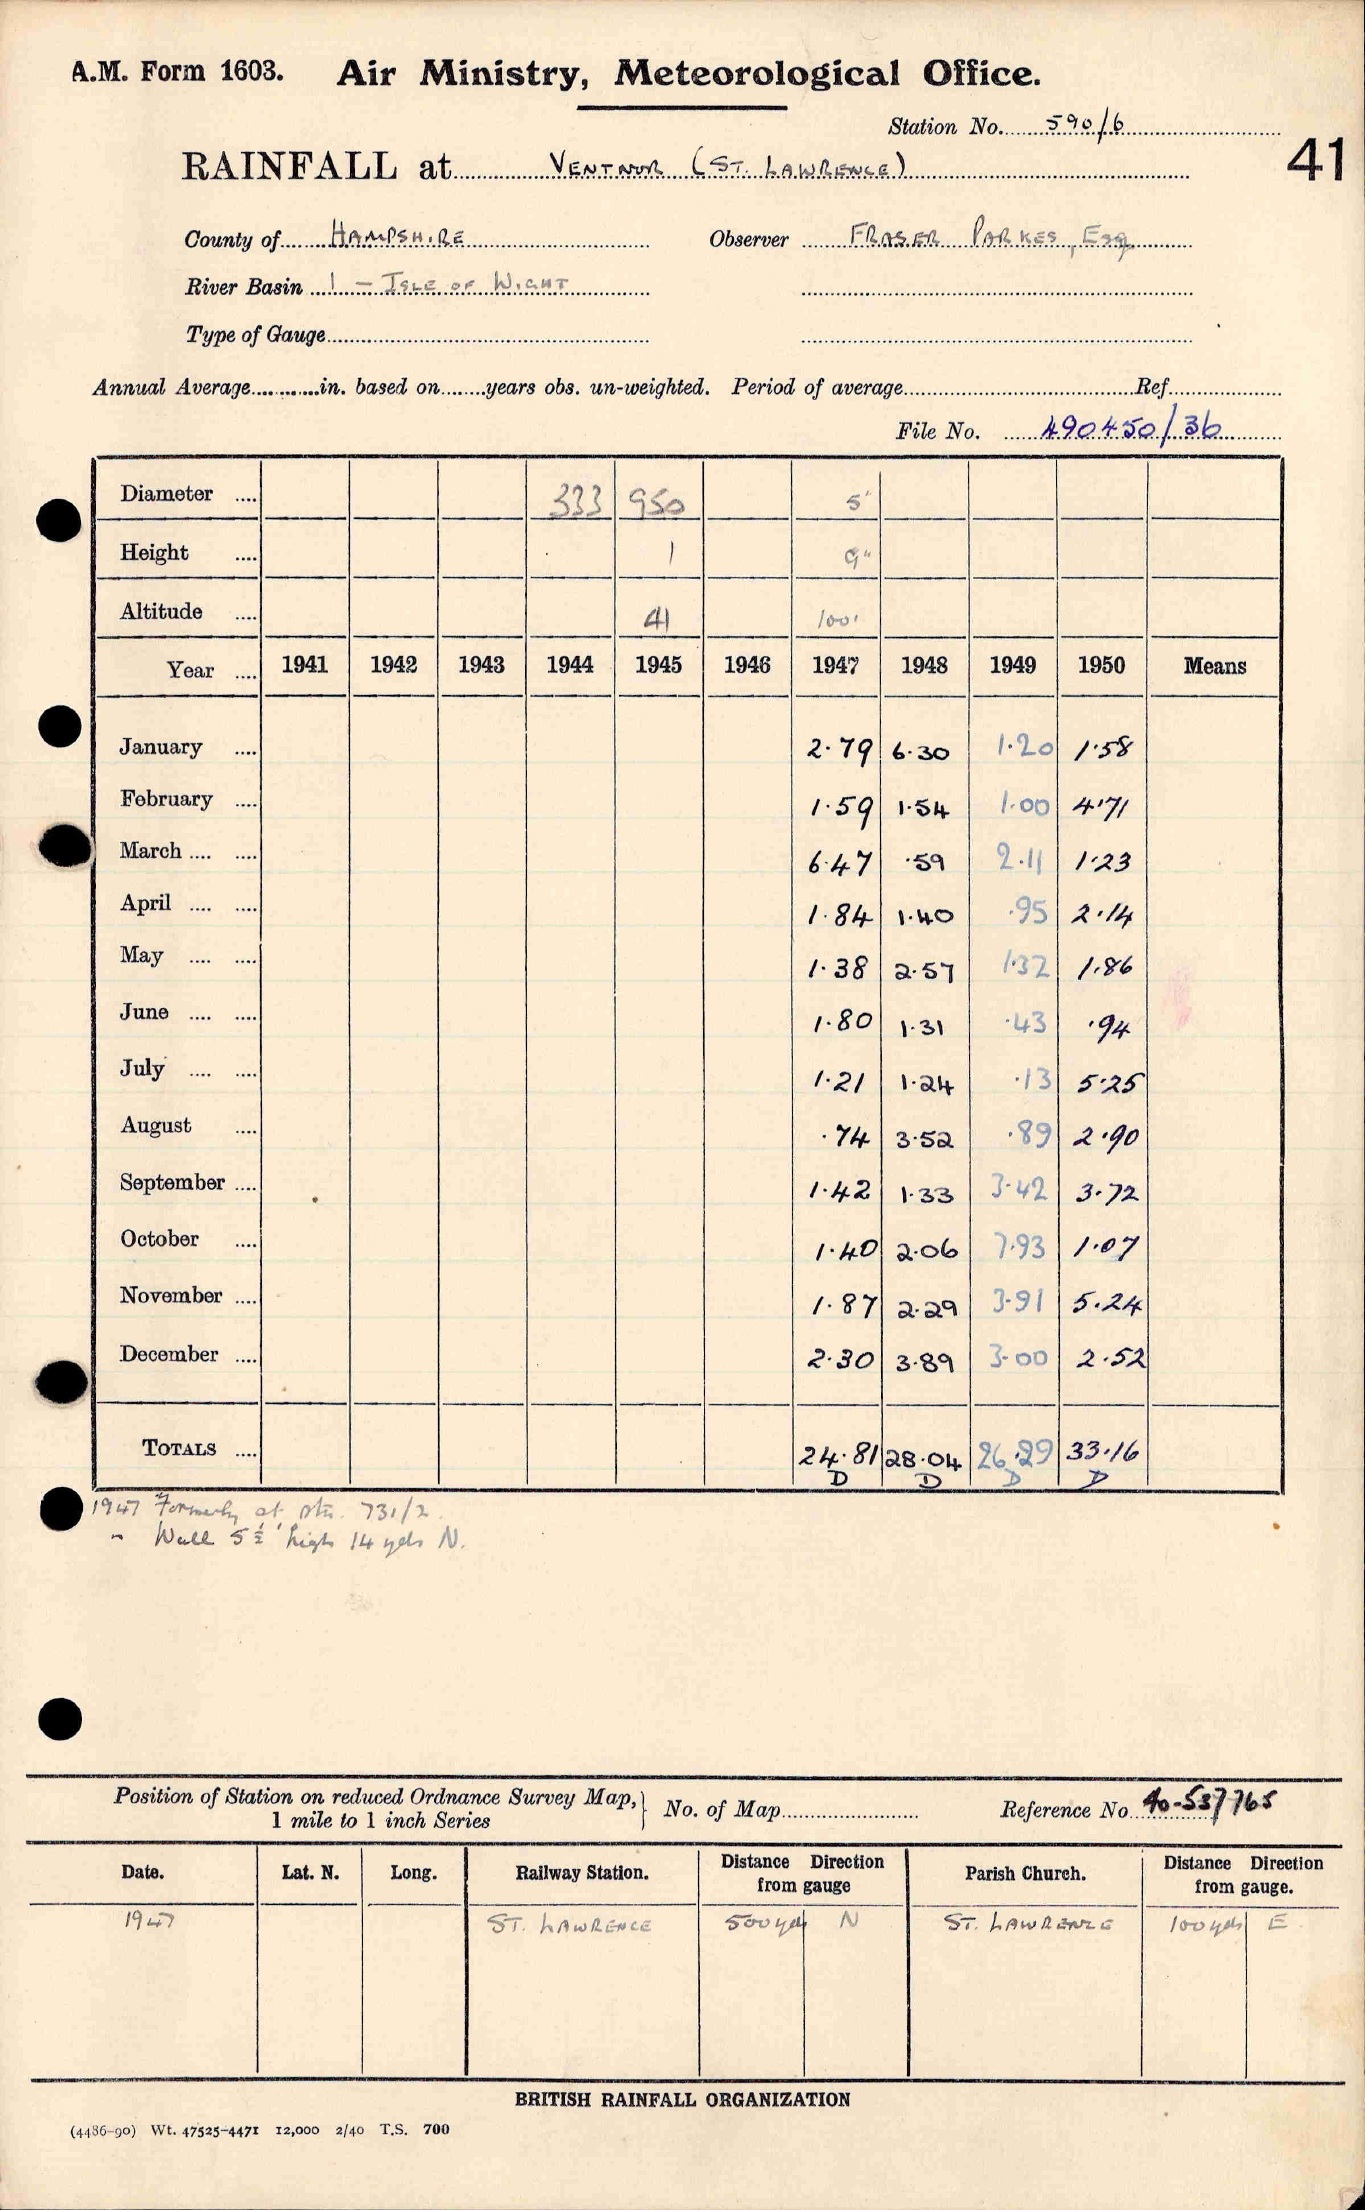 A.M. Form 1603. Air Ministry, Meteorological Office.
Station No. 590/6
41
RAINFALL at VENTNOR (ST. LAWRENCE)
County of HAMPSHIRE Observer FRASER PARKES, ESQ
River Basin 1 – ISLE OF WIGHT
Type of Gauge
Annual Average in. based on years obs. un-weighted. Period of average Ref.
File No. 490450/36
Diameter 333 950 5"
Height 1 9"
Altitude 41 100'
Year 1941 1942 1943 1944 1945 1946 1947 1948 1949 1950 Means
January 2.79 6.30 1.20 1.58
February 1.59 1.54 1.00 4.71
March 6.47 .59 2.11 1.23
April 1.84 1.40 .95 2.14
May 1.38 2.57 1.32 1.86
June 1.80 1.31 .43 .94
July 1.21 1.24 .13 5.25
August .74 3.52 .89 2.90
September 1.42 1.33 3.42 3.72
October 1.40 2.06 7.93 1.07
November 1.87 2.29 3.91 5.24
December 2.30 3.89 3.00 2.52
TOTALS 24.81 28.04 26.29 33.16
D D D D
1947 Formerly at stn. 731/2.
" Wall 5½' high 14 yds N.
Position of Station on reduced Ordnance Survey Map, 1 mile to 1 inch Series } No. of Map Reference No. 40-537765
Date. Lat. N. Long. Railway Station. Distance Direction from gauge Parish Church. Distance Direction from gauge.
1947 ST. LAWRENCE 500 yds N ST. LAWRENCE 100 yds E
BRITISH RAINFALL ORGANIZATION
(4486-90) Wt. 47525-4471 12,000 2/40 T.S. 700